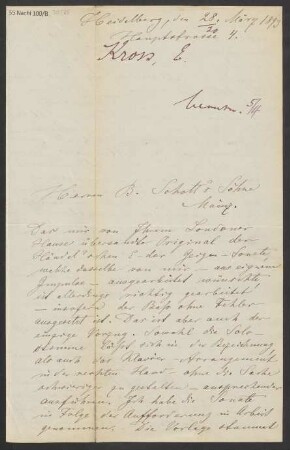 55 Nachl 100/B
Heidelberg, den 28. März 1893
Hauptstrasse 4.
Kross, E.
Herren B. Schott's Söhne
Mainz.
Das mir von Ihrem Londoner
Hause übersandte Original der
Händel'schen E-dur Geigen-Sonate,
welche dasselbe von mir – aus eigenem
Impulse – ausgearbeitet wünschte,
ist allerdings richtig gearbeitet
– insofern der Bass ohne Fehler
ausgesetzt ist. Das ist aber auch der
einzige Vorzug. Sowohl die Solo-
stimme lässt sich in der Bezeichnung
als auch das Klavier-Arrangement
in der rechten Hand – ohne die Sache
schwieriger zu gestalten – ansprechender
ausführen. Ich habe die Sonate
in Folge der Aufforderung in Arbeit
genommen. Die Vorlage stammt